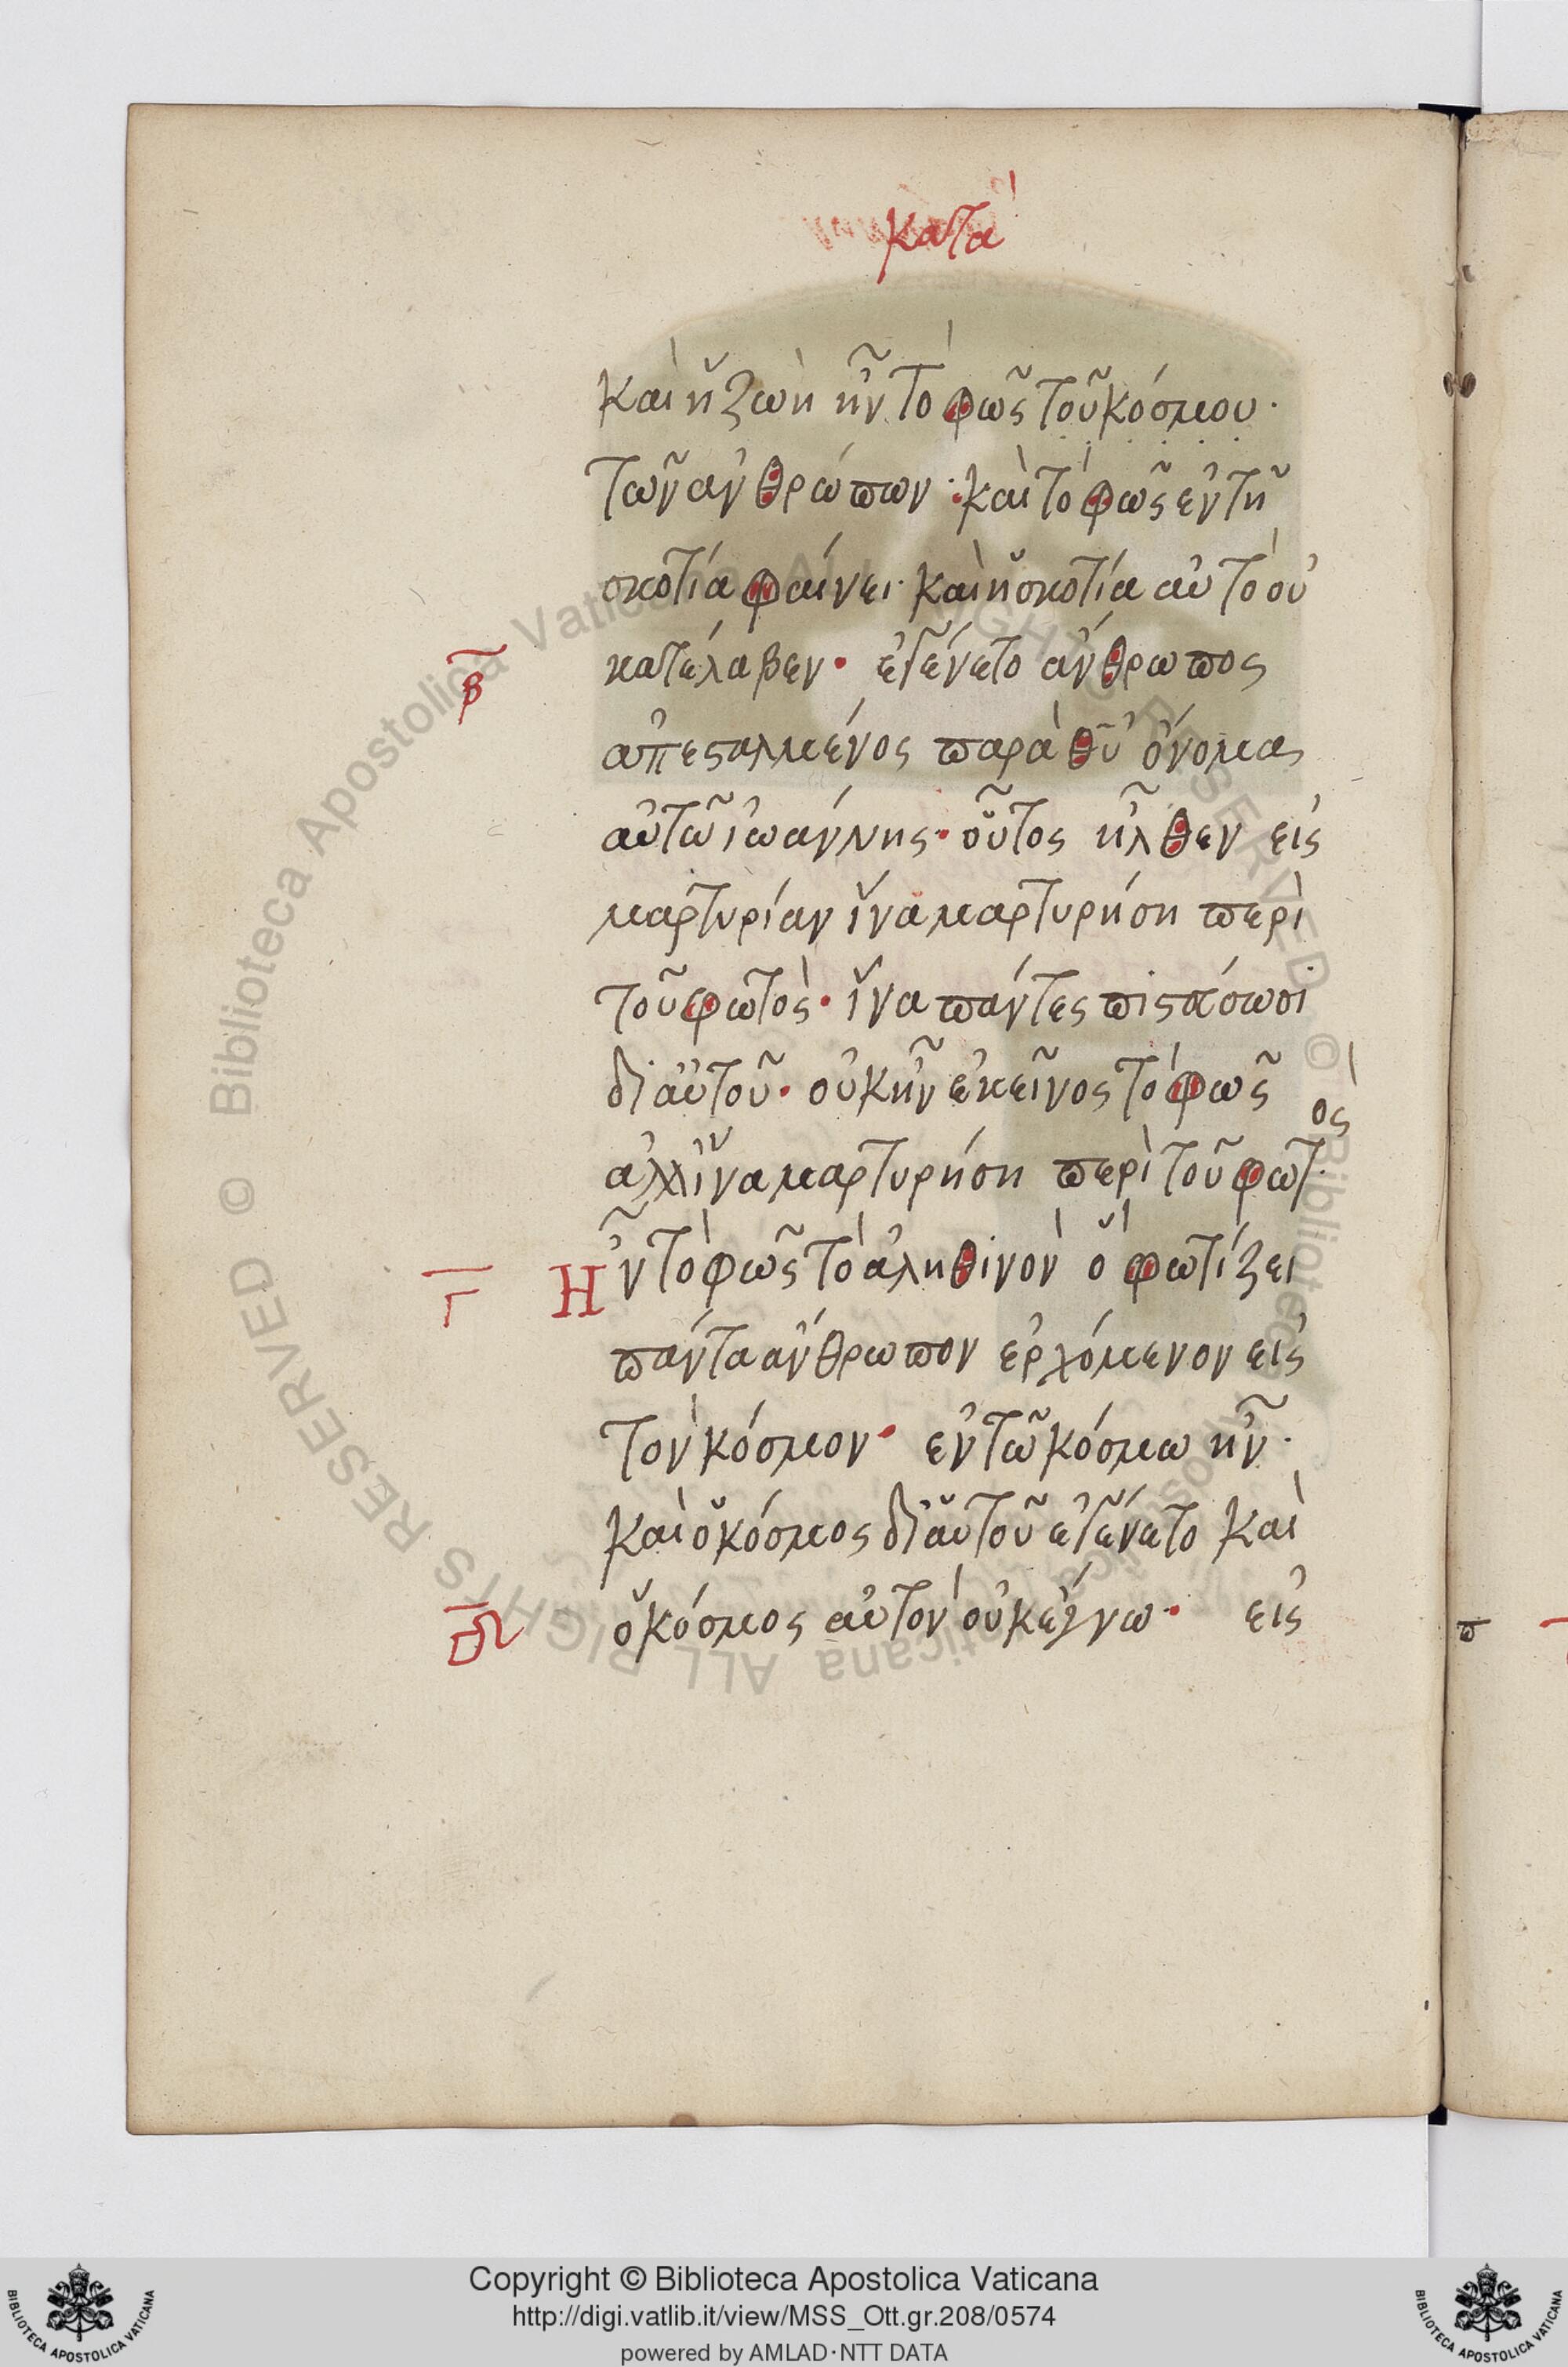 κατὰ
καὶ ἡ ζωὴ ἦν τὸ φῶς τοῦ κόσμου·
τῶν ἀνθρώπων· καὶ τὸ φῶς ἐν τῆ
σκοτία φαίνει· καὶ ἡ σκοτία αὐτὸ οὐ
κατέλαβεν· ἐγένετο ἄνθρωπος
β
ἀπεσταλμένος παρὰ θυ ὄνομας
αὐτῶ ἰωάννης· οὗτος ἦλθεν εἰς
μαρτυρίαν ἵνα μαρτυρήση περὶ
τοῦ φωτὸς· ἵνα πάντες πιστεύσωσι
δι αὐτοῦ· οὐκ ἦν ἐκεῖνος τὸ φῶς
ἀλλ ἵνα μαρτυρήση περὶ τοῦ φωτὸς
γ
Ἦν τὸ φῶς τὸ ἀληθινὸν ὃ φωτίζει
πάντα ἄνθρωπον ἐρχόμενον εἰς
τὸν κόσμον· ἐν τῶ κόσμω ἦν·
καὶ ὁ κόσμος δι αὐτοῦ ἐγένετο καὶ
δ
ὁ κόσμος αὐτὸν οὐκ ἔγνω· εἰς
© Biblioteca Apostolica Vaticana ALL RIGHTS RESERVED © Biblioteca Apostolica Vaticana ALL RIGHTS RESERVED
Copyright © Biblioteca Apostolica Vaticana
http://digi.vatlib.it/view/MSS_Ott.gr.208/0574
powered by AMLAD·NTT DATA
BIBLIOTECA APOSTOLICA VATICANA
BIBLIOTECA APOSTOLICA VATICANA